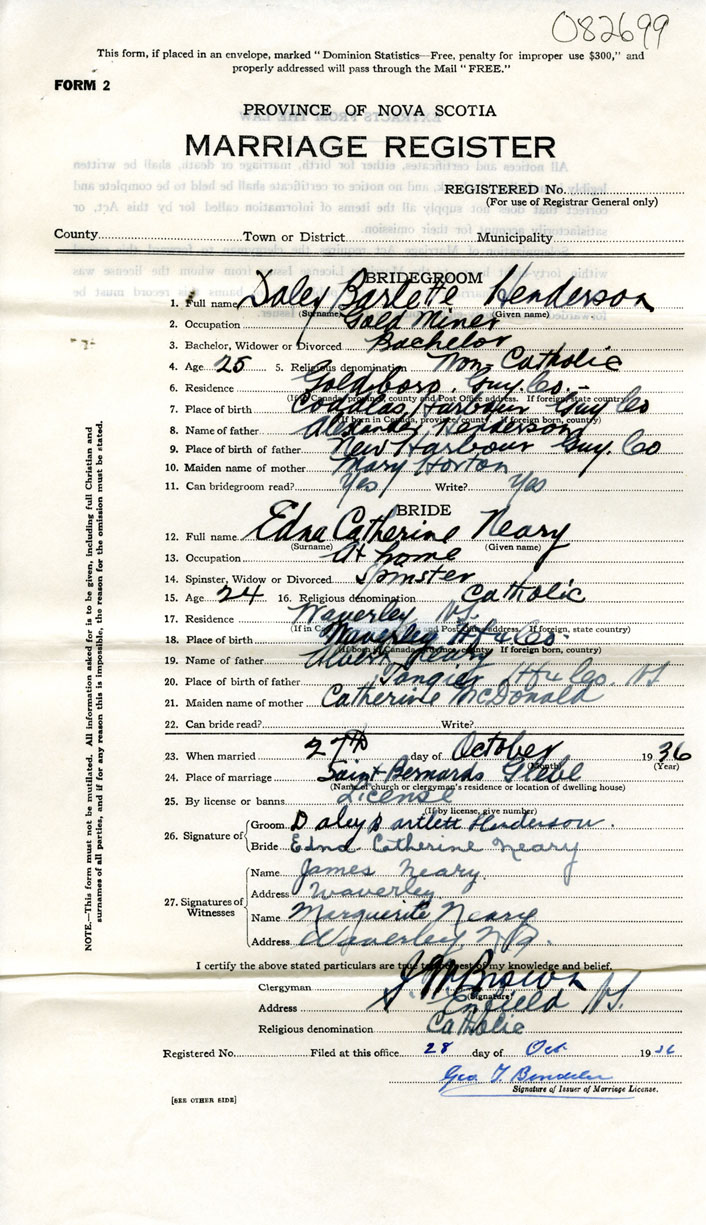 082699
This form, if placed in an envelope, marked "Dominion Statistics—Free, penalty for improper use $300," and
properly addressed will pass through the Mail "FREE."
FORM 2
PROVINCE OF NOVA SCOTIA
MARRIAGE REGISTER
REGISTERED No.
(For use of Registrar General only)
County Town or District Municipality
BRIDEGROOM
1. Full name Daley Barlette Henderson
(Surname) (Given name)
2. Occupation Gold Miner
3. Bachelor, Widower or Divorced Bachelor
4. Age 25 5. Religious denomination Non Catholic
6. Residence Goldsboro, Guy. Co.
(If in Canada, province, county and Post Office address. If foreign, state country)
7. Place of birth Coddles Harbour Guy Co
(If born in Canada, province, county. If foreign born, country)
8. Name of father Alexander Henderson
9. Place of birth of father New Harbour Guy. Co
10. Maiden name of mother Mary Horton
11. Can bridegroom read? Yes Write? Yes
BRIDE
12. Full name Edna Catherine Neary
(Surname) (Given name)
13. Occupation At home
14. Spinster, Widow or Divorced Spinster
15. Age 24 16. Religious denomination Catholic
17. Residence Waverley N.S.
(If in Canada, province, county and Post Office address. If foreign, state country)
18. Place of birth Waverley Hfx Co.
(If born in Canada, province, county. If foreign born, country)
19. Name of father Neary
20. Place of birth of father Tangier Hfx Co. N.S.
21. Maiden name of mother Catherine McDonald
22. Can bride read? Write?
23. When married 27th day of October 1936
(Month) (Year)
24. Place of marriage Saint Bernards Glebe
(Name of church or clergyman's residence or location of dwelling house)
25. By license or banns License
(If by license, give number)
26. Signature of Groom Daley Bartlett Henderson.
Bride Edna Catherine Neary
27. Signatures of Witnesses Name James Neary
Address Waverley
Name Marguerite Neary
Address Waverley, N.S.
I certify the above stated particulars are true to the best of my knowledge and belief,
Clergyman Brown
(Signature)
Address Enfield N.S.
Religious denomination Catholic
Registered No. Filed at this office 28 day of Oct 1936
Geo T.
Signature of Issuer of Marriage License.
[SEE OTHER SIDE]
NOTE.—This form must not be mutilated. All information asked for is to be given, including full Christian and
surnames of all parties, and if for any reason this is impossible, the reason for the omission must be stated.